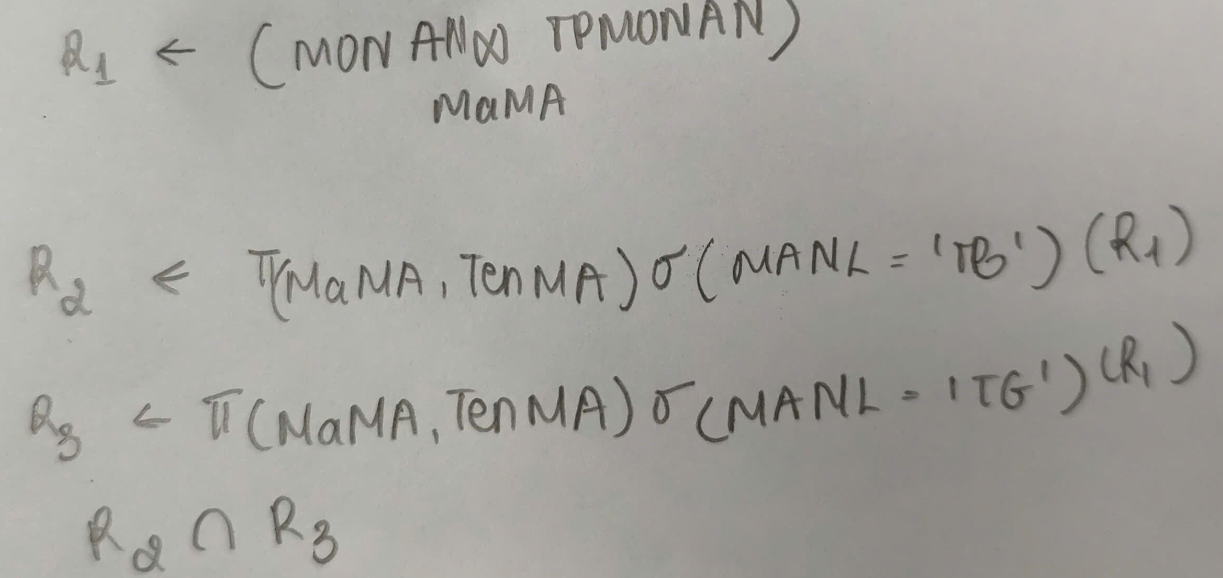 R1 ← (MON AN ⋈ TPMONAN)
MaMA
R2 ← π(MaMA, TenMA) σ(MANL = 'TB') (R1)
R3 ← π(MaMA, TenMA) σ(MANL = 'TG') (R1)
R2 ∩ R3